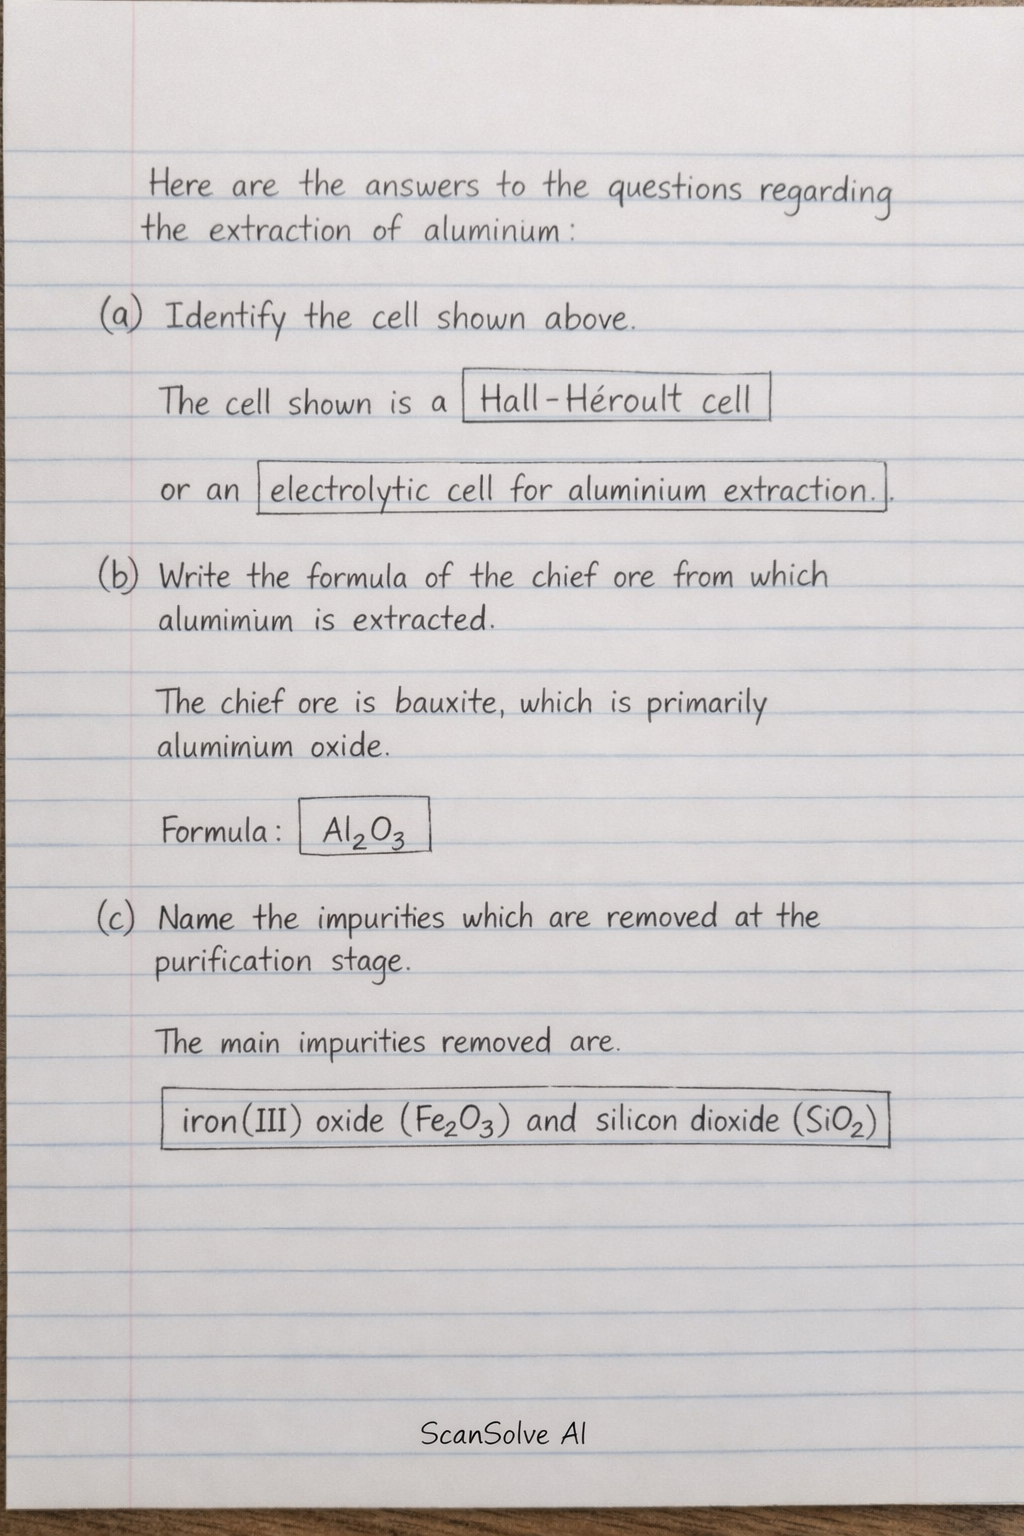 Here are the answers to the questions regarding
the extraction of aluminum:
(a) Identify the cell shown above.
The cell shown is a Hall-Héroult cell
or an electrolytic cell for aluminium extraction..
(b) Write the formula of the chief ore from which
alumimum is extracted.
The chief ore is bauxite, which is primarily
alumimum oxide.
Formula: Al₂O₃
(c) Name the impurities which are removed at the
purification stage.
The main impurities removed are.
iron(III) oxide (Fe₂O₃) and silicon dioxide (SiO₂)
ScanSolve AI